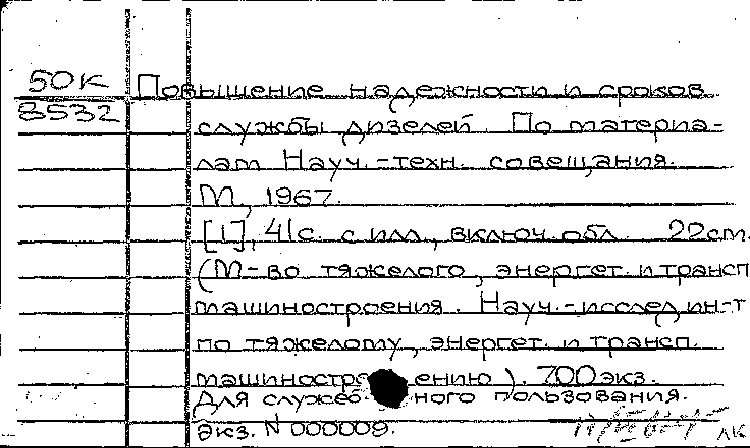 50К
8532
Повышение надежности и сроков
службы дизелей. По материа-
лам Науч.-техн. совещания.
М., 1967.
[1], 41с. с илл., включ. обл. 22см.
(М-во тяжелого, энергет. и трансп
машиностроения. Науч.-исслед. ин-т
по тяжелому, энергет. и трансп.
машиностроению). 700экз.
Для служебного пользования.
Экз. N 000009.
ЛК